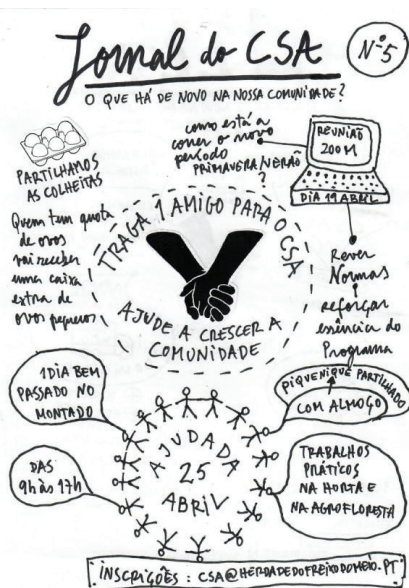 Jornal do CSA
Nº5
O QUE HÁ DE NOVO NA NOSSA COMUNIDADE?
PARTILHAMOS
AS COLHEITAS
Quem tem quota
de ovos
vai receber
uma caixa
extra de
ovos pequenos
como está a
correr o novo
período
PRIMAVERA/VERÃO
?
REUNIÃO
ZOOM
DIA 19 ABRIL
Rever
Normas
reforçar
essência do
Programa
TRAGA 1 AMIGO PARA O CSA
AJUDE A CRESCER A
COMUNIDADE
1 DIA BEM
PASSADO NO
MONTADO
DAS
9h às 17h
AJUDADA
25
ABRIL
PIQUENIQUE PARTILHADO
COM ALMOÇO
TRABALHOS
PRÁTICOS
NA HORTA E
NA AGROFLORESTA
INSCRIÇÕES: CSA@HERDADEDOFREIXODOMEIO.PT